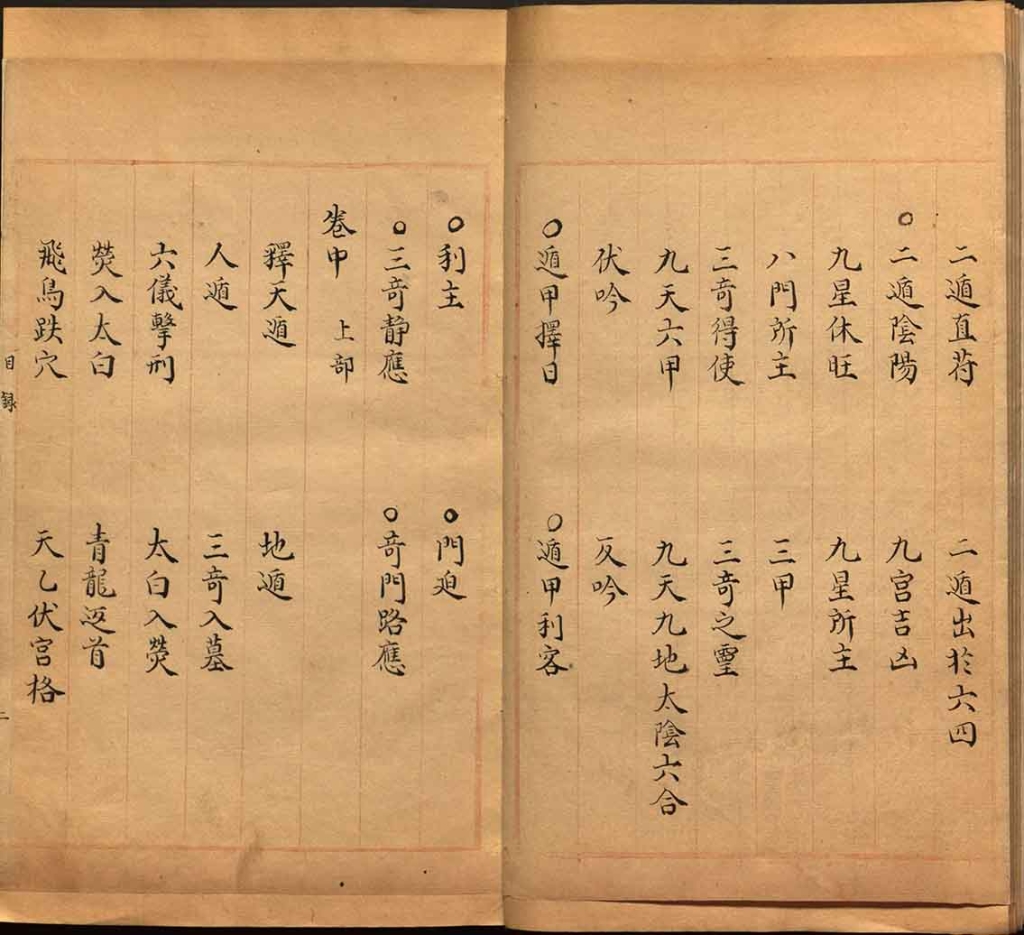 二遁直苻 二遁出於六四
○二遁陰陽 九宮吉凶
九星休旺 九星所主
八門所主 三甲
三奇得使 三奇之靈
九天六甲 九天九地太陰六合
伏吟 反吟
○遁甲擇日 ○遁甲利客
○利主 ○門迫
○三奇静應 ○奇門路應
卷中 上部
釋天遁 地遁
人遁 三奇入墓
六儀擊刑 太白入熒
熒入太白 青龍返首
飛鳥跌穴 天乙伏宮格
目録 二